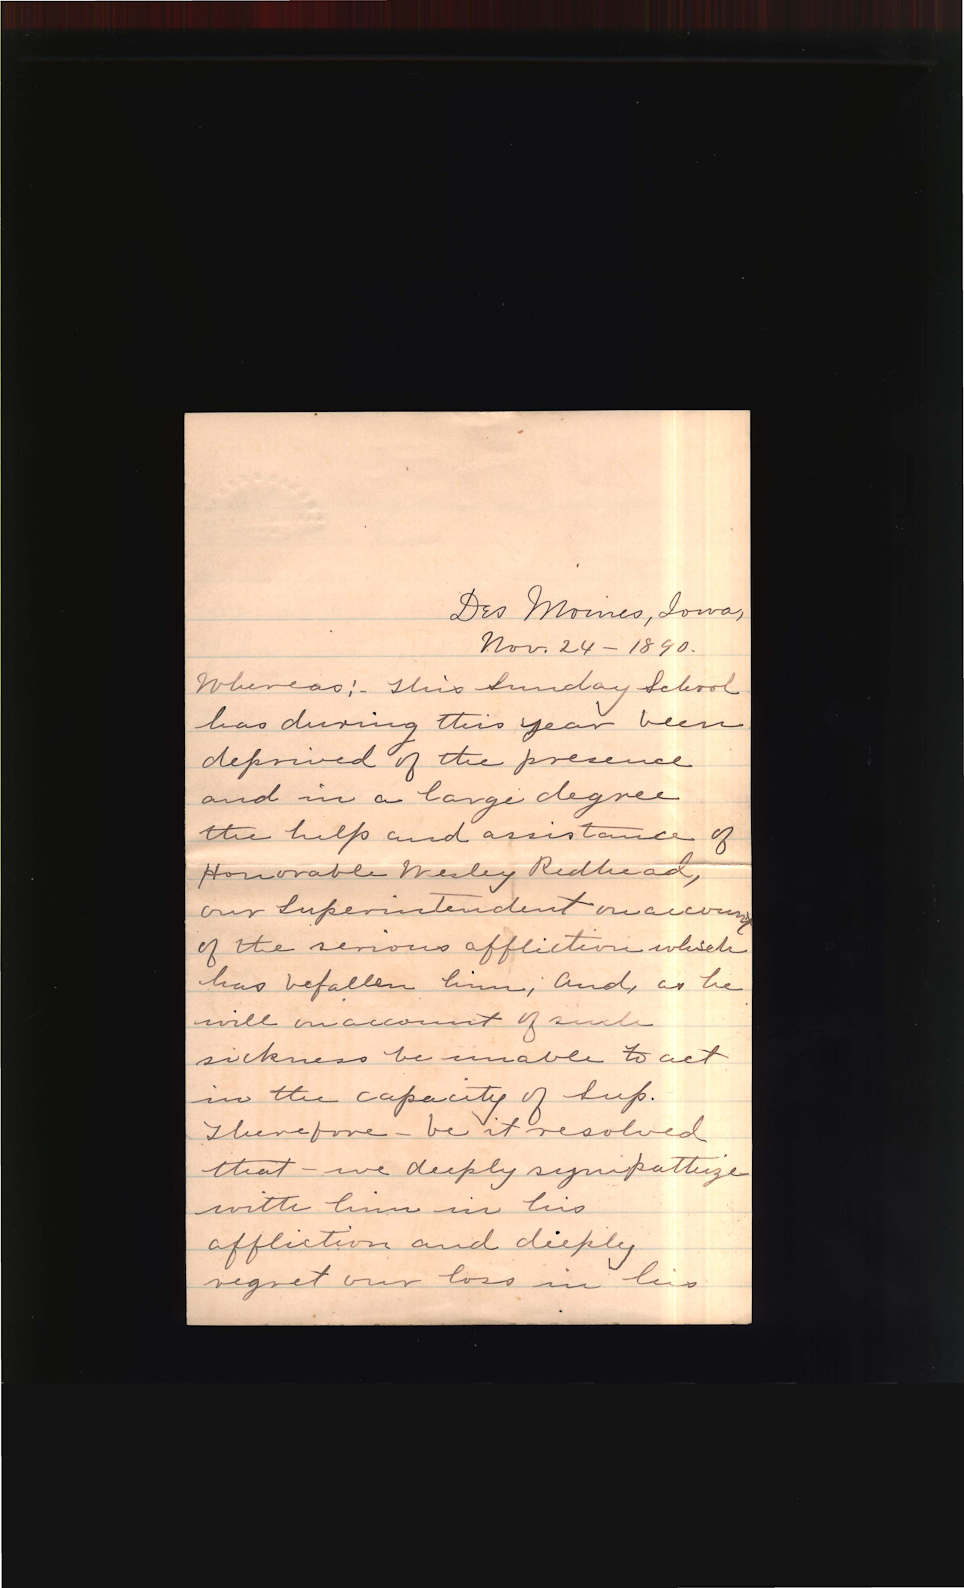 Des Moines, Iowa,
Nov. 24 - 1890.
Whereas:- This Sunday School
has during this year been
deprived of the presence
and in a large degree
the help and assistance of
Honorable Wesley Redhead,
our Superintendent on account
of the serious affliction which
has befallen him; And, as he
will on account of such
sickness be unable to act
in the capacity of Sup.
Therefore - be it resolved
that - we deeply sympathize
with him in his
affliction and deeply
regret our loss in his